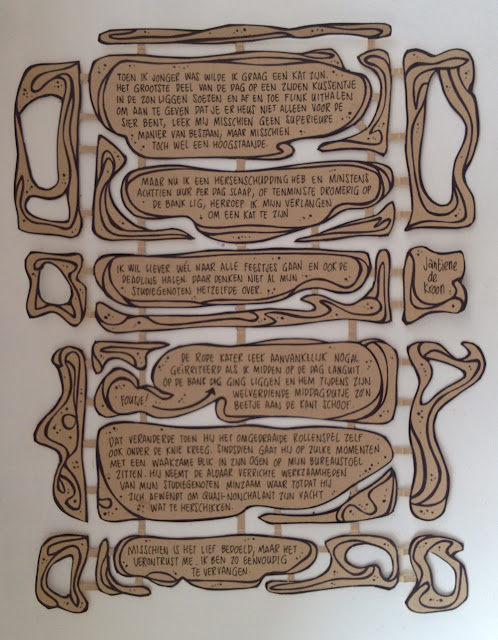 TOEN IK JONGER WAS WILDE IK GRAAG EEN KAT ZIJN.
HET GROOTSTE DEEL VAN DE DAG OP EEN ZIJDEN KUSSENTJE
IN DE ZON LIGGEN SOEZEN EN AF EN TOE FLINK UITHALEN
OM AAN TE GEVEN DAT JE ER HEUS NIET ALLEEN VOOR DE
SIER BENT, LEEK MIJ MISSCHIEN GEEN SUPERIEURE
MANIER VAN BESTAAN, MAAR MISSCHIEN
TOCH WEL EEN HOOGSTAANDE.
MAAR NU IK EEN HERSENSCHUDDING HEB EN MINSTENS
ACHTTIEN UUR PER DAG SLAAP, OF TENMINSTE DROMERIG OP
DE BANK LIG, HERROEP IK MIJN VERLANGEN
OM EEN KAT TE ZIJN
IK WIL LIEVER WÉL NAAR ALLE FEESTJES GAAN EN OOK DE
DEADLINE HALEN. DAAR DENKEN NIET AL MIJN
STUDIEGENOTEN HETZELFDE OVER.
Jantiene
de
Kroon
DE RODE KATER LEEK AANVANKELIJK NOGAL
GEÏRRITEERD ALS IK MIDDEN OP DE DAG LANGUIT
OP DE BANK DIG GING LIGGEN EN HEM TIJDENS ZIJN
WELVERDIENDE MIDDAGDUTJE ZO'N
BEETJE AAN DE KANT SCHOOF.
FOUTJE!
DAT VERANDERDE TOEN HIJ HET OMGEDRAAIDE ROLLENSPEL ZELF
OOK ONDER DE KNIE KREEG. SINDSDIEN GAAT HIJ OP ZULKE MOMENTEN
MET EEN WAAKZAME BLIK IN ZIJN OGEN OP MIJN BUREAUSTOEL
ZITTEN. HIJ NEEMT DE ALDAAR VERRICHTE WERKZAAMHEDEN
VAN MIJN STUDIEGENOTEN MINZAAM WAAR TOTDAT HIJ
ZICH AFWENDT OM QUASI-NONCHALANT ZIJN VACHT
WAT TE HERSCHIKKEN.
MISSCHIEN IS HET LIEF BEDOELD, MAAR HET
VERONTRUST ME. IK BEN ZO EENVOUDIG
TE VERVANGEN